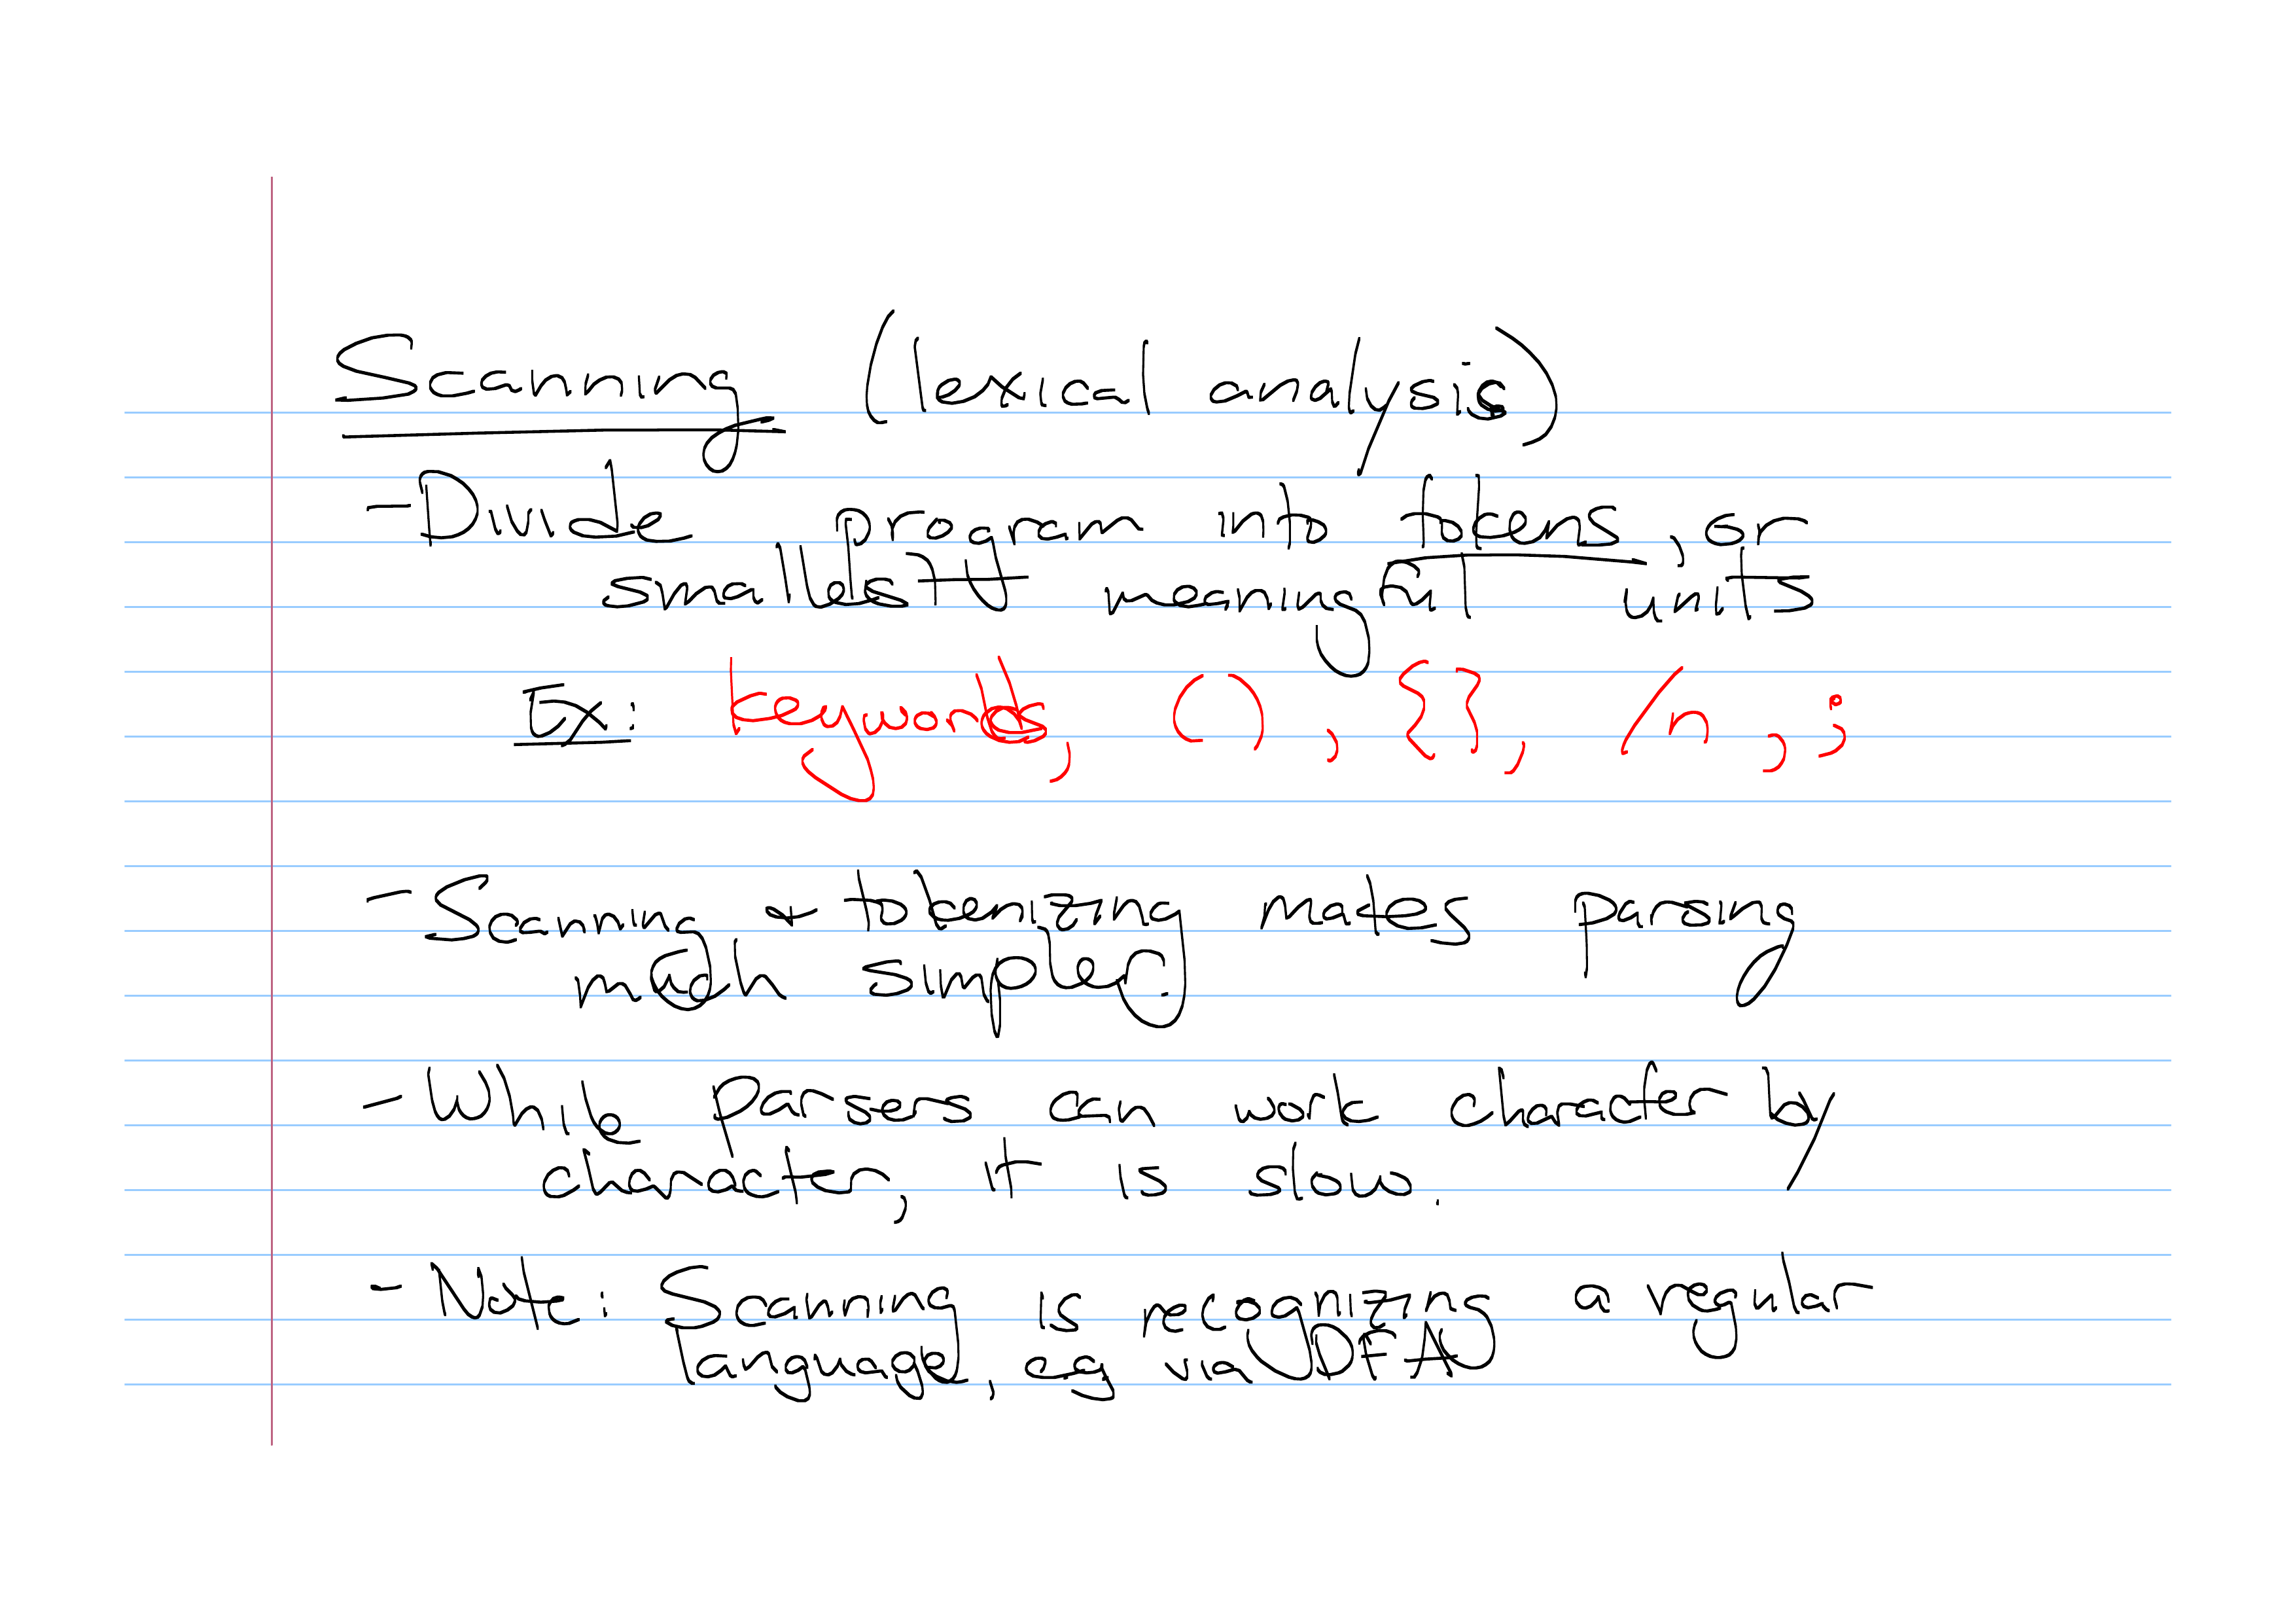 Scanning (lexical analysis)
- Divide program into tokens, or
smallest meaningful units
Ex: keywords, (), {}, /n, ;
- Scanning + tokenizing makes parsing
much simpler.
- While parsers can work character by
character, it is slow.
- Note: Scanning is recognizing a regular
language, eg via DFA